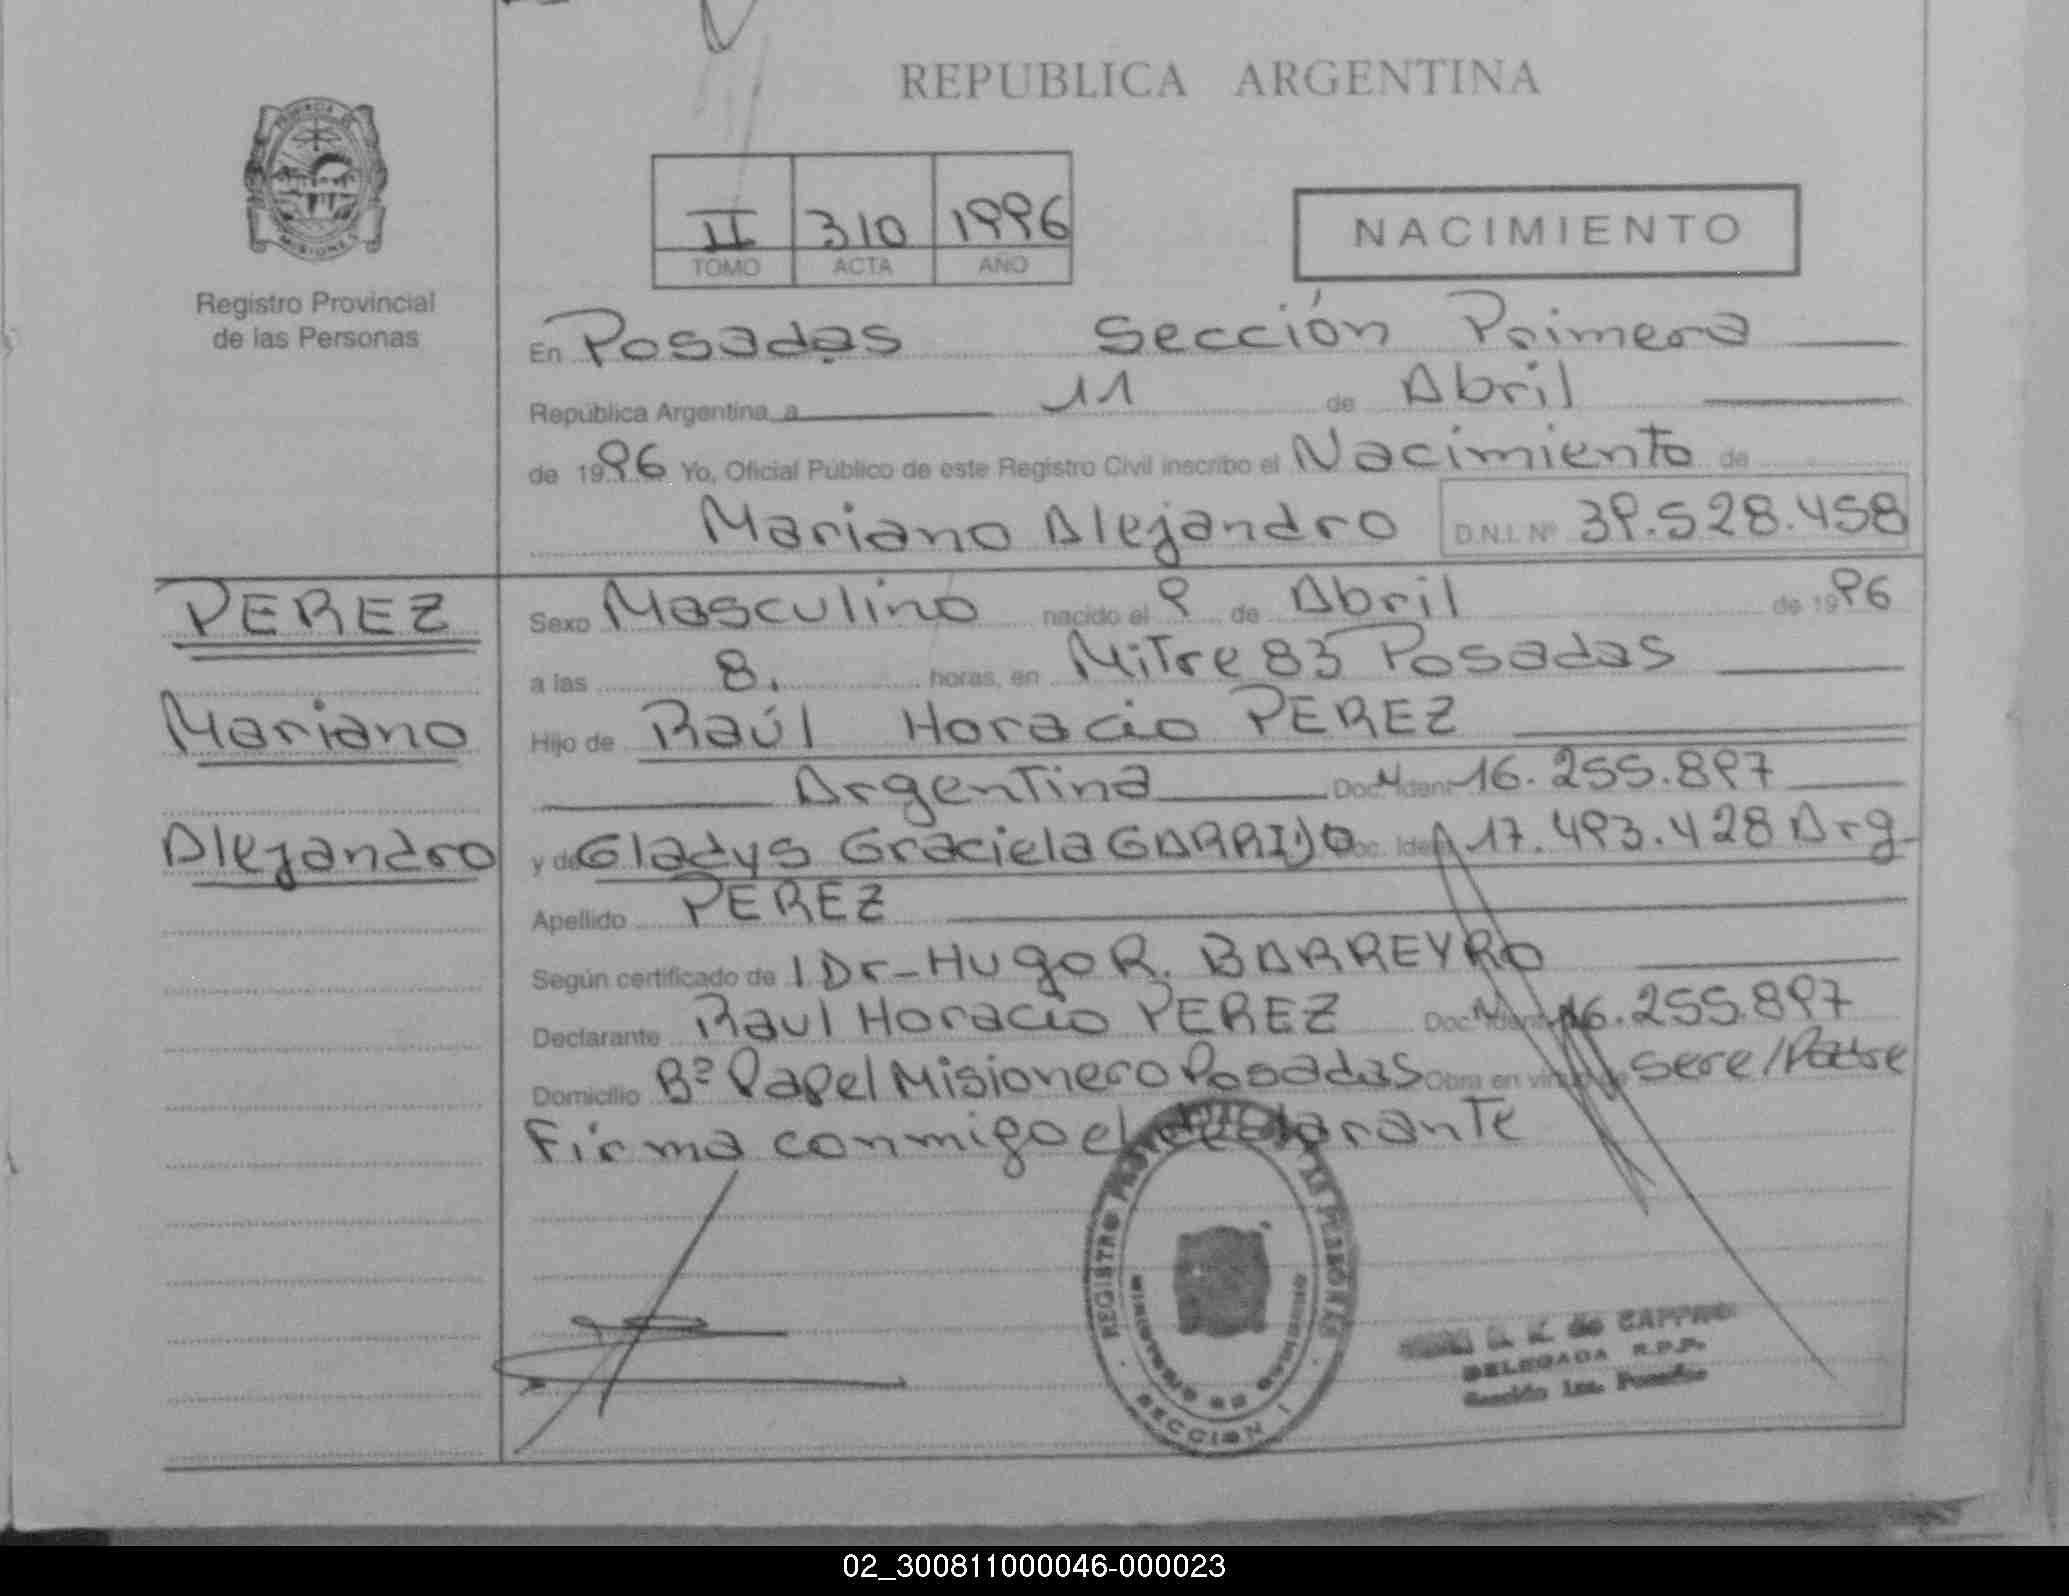 REPUBLICA ARGENTINA
PROVINCIA DE
MISIONES
Registro Provincial
de las Personas
II 310 1996
TOMO ACTA AÑO
NACIMIENTO
En Posadas Sección Primera
República Argentina, a 11 de Abril
de 1996 Yo, Oficial Público de este Registro Civil inscribo el Nacimiento de
Mariano Alejandro D.N.I. Nº 39.528.458
PEREZ
Mariano
Alejandro
Sexo Masculino nacido el 9 de Abril de 1996
a las 8. horas, en Mitre 83 Posadas
Hijo de Raúl Horacio PEREZ
Argentina Doc. Ident 16.255.897
y de Gladys Graciela GARRIDO Doc. Ident 17.493.428 Arg.
Apellido PEREZ
Según certificado de 1 Dr-Hugo R. BARREYRO
Declarante Raul Horacio PEREZ Doc. Ident 16.255.897
Domicilio Bº Papel Misionero Posadas Obra en virtud de sere/Padre
Firma conmigo el declarante
REGISTRO DE LAS PERSONAS
MINISTERIO DE GOBIERNO
SECCION I
de CAFFARO
DELEGADA R.P.P.
Sección 1ra. Posadas
02_300811000046-000023